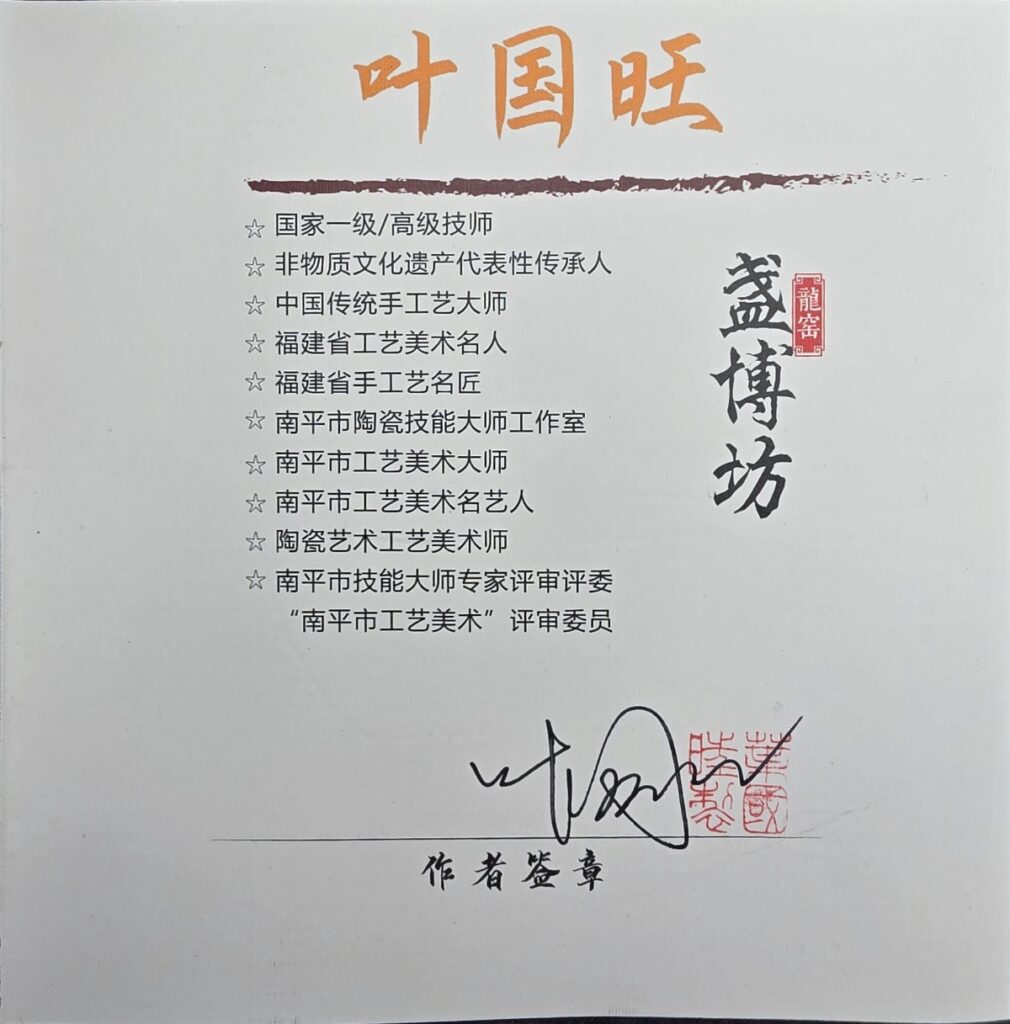 叶国旺
☆ 国家一级/高级技师
☆ 非物质文化遗产代表性传承人
☆ 中国传统手工艺大师
☆ 福建省工艺美术名人
☆ 福建省手工艺名匠
☆ 南平市陶瓷技能大师工作室
☆ 南平市工艺美术大师
☆ 南平市工艺美术名艺人
☆ 陶瓷艺术工艺美术师
☆ 南平市技能大师专家评审评委
“南平市工艺美术”评审委员
盏博坊
龍窑
叶国旺
葉國
製
作者签章